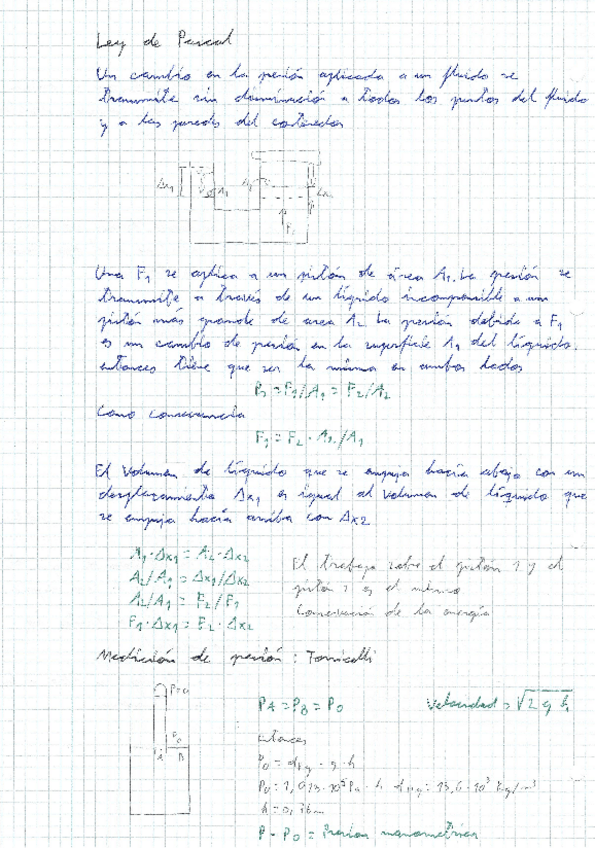 Ley de Pascal
Un cambio en la presión aplicada a un fluido se
transmite sin disminución a todos los puntos del fluido
y a las paredes del contenedor
Δx1 A1 A2 Δx2
F2
Una F1 se aplica a un pistón de área A1. La presión se
transmite a través de un líquido incompresible a un
pistón más grande de area A2 La presión debida a F1
es un cambio de presión en la superficie A1 del líquido.
entonces tiene que ser la misma en ambos lados
P = F1/A1 = F2/A2
Como consecuencia
F1 = F2 · A1/A1
El volumen de líquido que se empuja hacia abajo con un
desplazamiento Δx1 es igual al volumen de líquido que
se empuja hacia arriba con Δx2
A1·Δx1 = A2·Δx2
A2/A1 = Δx1/Δx2
A2/A1 = F2/F1
F1·Δx1 = F2·Δx2
El trabajo sobre el pistón 1 y el
pistón 2 es el mismo
Conservación de la energía
Medición de presión: Torricelli
P=0
P0
A B
PA = PB = P0
velocidad = √2 g h
entonces
P0 = dHg · g · h
P0: 1,013·10⁵ Pa · h dHg: 13,6·10³ kg/m³
h = 0,76m
P - P0 = Presion manometrica